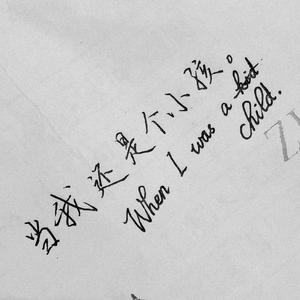 当我还是个小孩。
When I was a child.